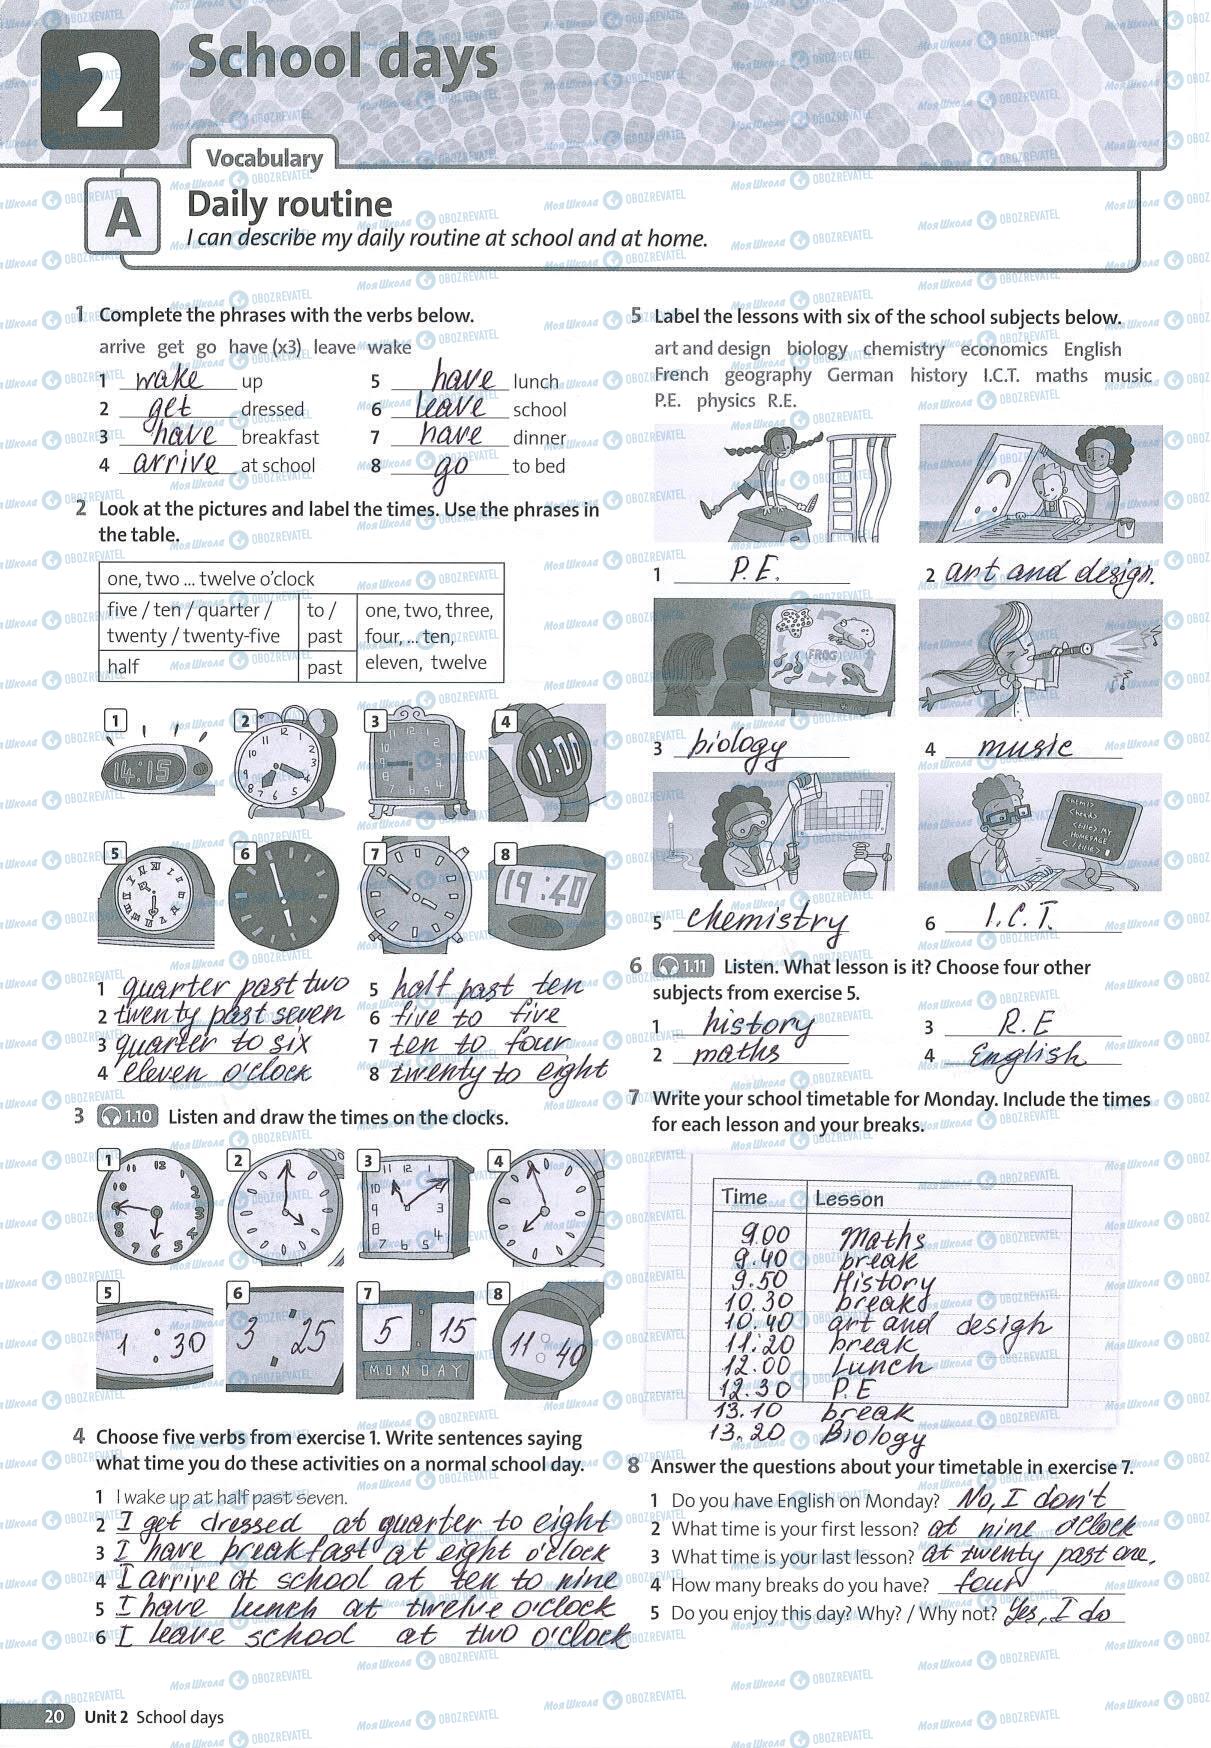 2
School days
Vocabulary
A
Daily routine
I can describe my daily routine at school and at home.
1 Complete the phrases with the verbs below.
arrive get go have (x3) leave wake
1 wake up
2 get dressed
3 have breakfast
4 arrive at school
5 have lunch
6 leave school
7 have dinner
8 go to bed
2 Look at the pictures and label the times. Use the phrases in
the table.
one, two ... twelve o'clock
five / ten / quarter /
twenty / twenty-five
to /
past
one, two, three,
four, ... ten,
eleven, twelve
half
past
1
14:15
2
3
4
11:00
5
6
7
8
19:40
1 quarter past two
2 twenty past seven
3 quarter to six
4 eleven o'clock
5 half past ten
6 five to five
7 ten to four
8 twenty to eight
3 1.10 Listen and draw the times on the clocks.
1
2
3
4
5
1:30
6
3:25
7
5:15
MONDAY
8
11:40
4 Choose five verbs from exercise 1. Write sentences saying
what time you do these activities on a normal school day.
1 I wake up at half past seven.
2 I get dressed at quarter to eight
3 I have breakfast at eight o'clock
4 I arrive at school at ten to nine
5 I have lunch at twelve o'clock
6 I leave school at two o'clock
5 Label the lessons with six of the school subjects below.
art and design biology chemistry economics English
French geography German history I.C.T. maths music
P.E. physics R.E.
1 P.E.
2 art and design.
FROG
3 biology
4 music
5 chemistry
6 I.C.T.
6 1.11 Listen. What lesson is it? Choose four other
subjects from exercise 5.
1 history
2 maths
3 R.E
4 English
7 Write your school timetable for Monday. Include the times
for each lesson and your breaks.
Time Lesson
9.00 Maths
9.40 break
9.50 History
10.30 break
10.40 art and design
11.20 break
12.00 Lunch
12.30 P.E
13.10 break
13.20 Biology
8 Answer the questions about your timetable in exercise 7.
1 Do you have English on Monday? No, I don't
2 What time is your first lesson? at nine o'clock
3 What time is your last lesson? at twenty past one.
4 How many breaks do you have? four
5 Do you enjoy this day? Why? / Why not? Yes, I do
20 Unit 2 School days
Моя Школа OBOZREVATEL